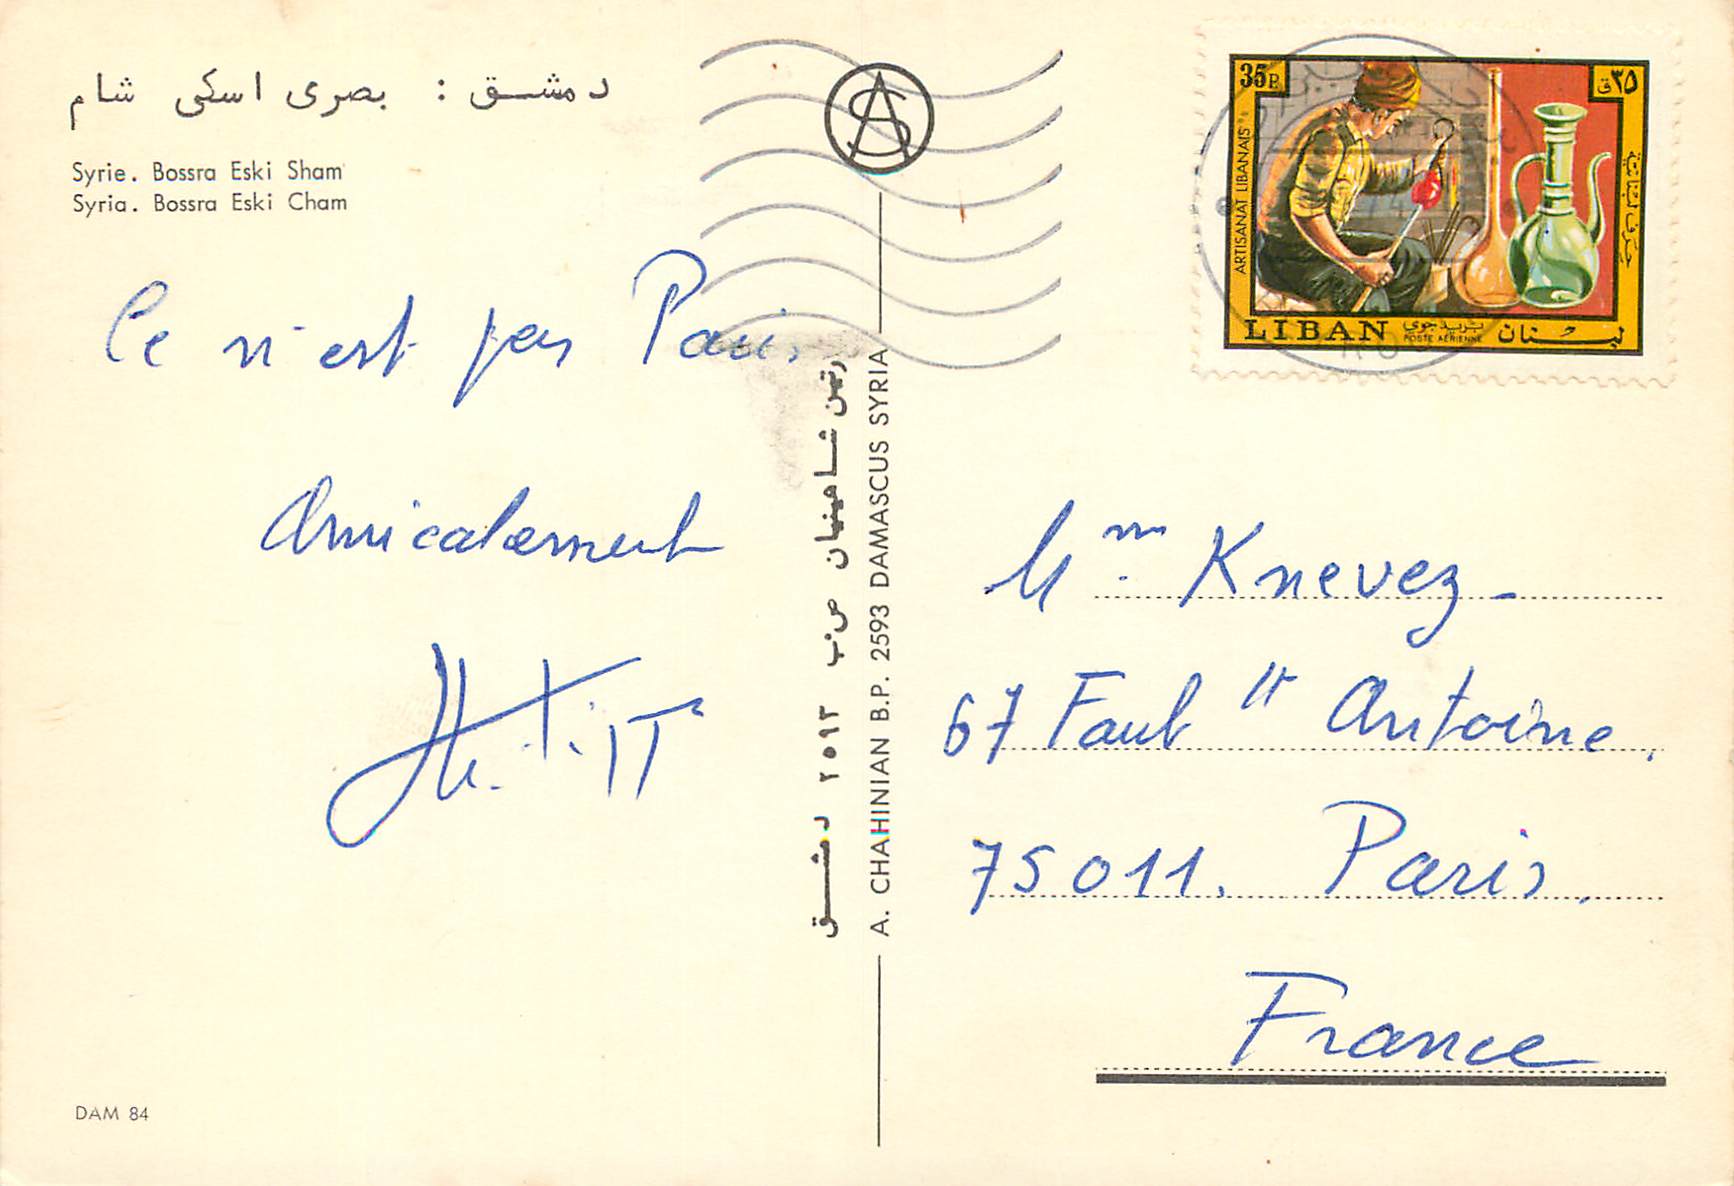 دمشق : بصرى اسكى شام
Syrie. Bossra Eski Sham
Syria. Bossra Eski Cham
Ce n'est pas Paris
Amicalement
DAM 84
AS
رتين شاهينيان ص.ب ٢٥٩٣ دمشق
A. CHAHINIAN B.P. 2593 DAMASCUS SYRIA
35P.
٣٥ق
ARTISANAT LIBANAIS
حرف لبنانية
LIBAN بريد جوي لبنان
POSTE AÉRIENNE
Mm. Knevez
67 Faub St Antoine,
75011. Paris.
France